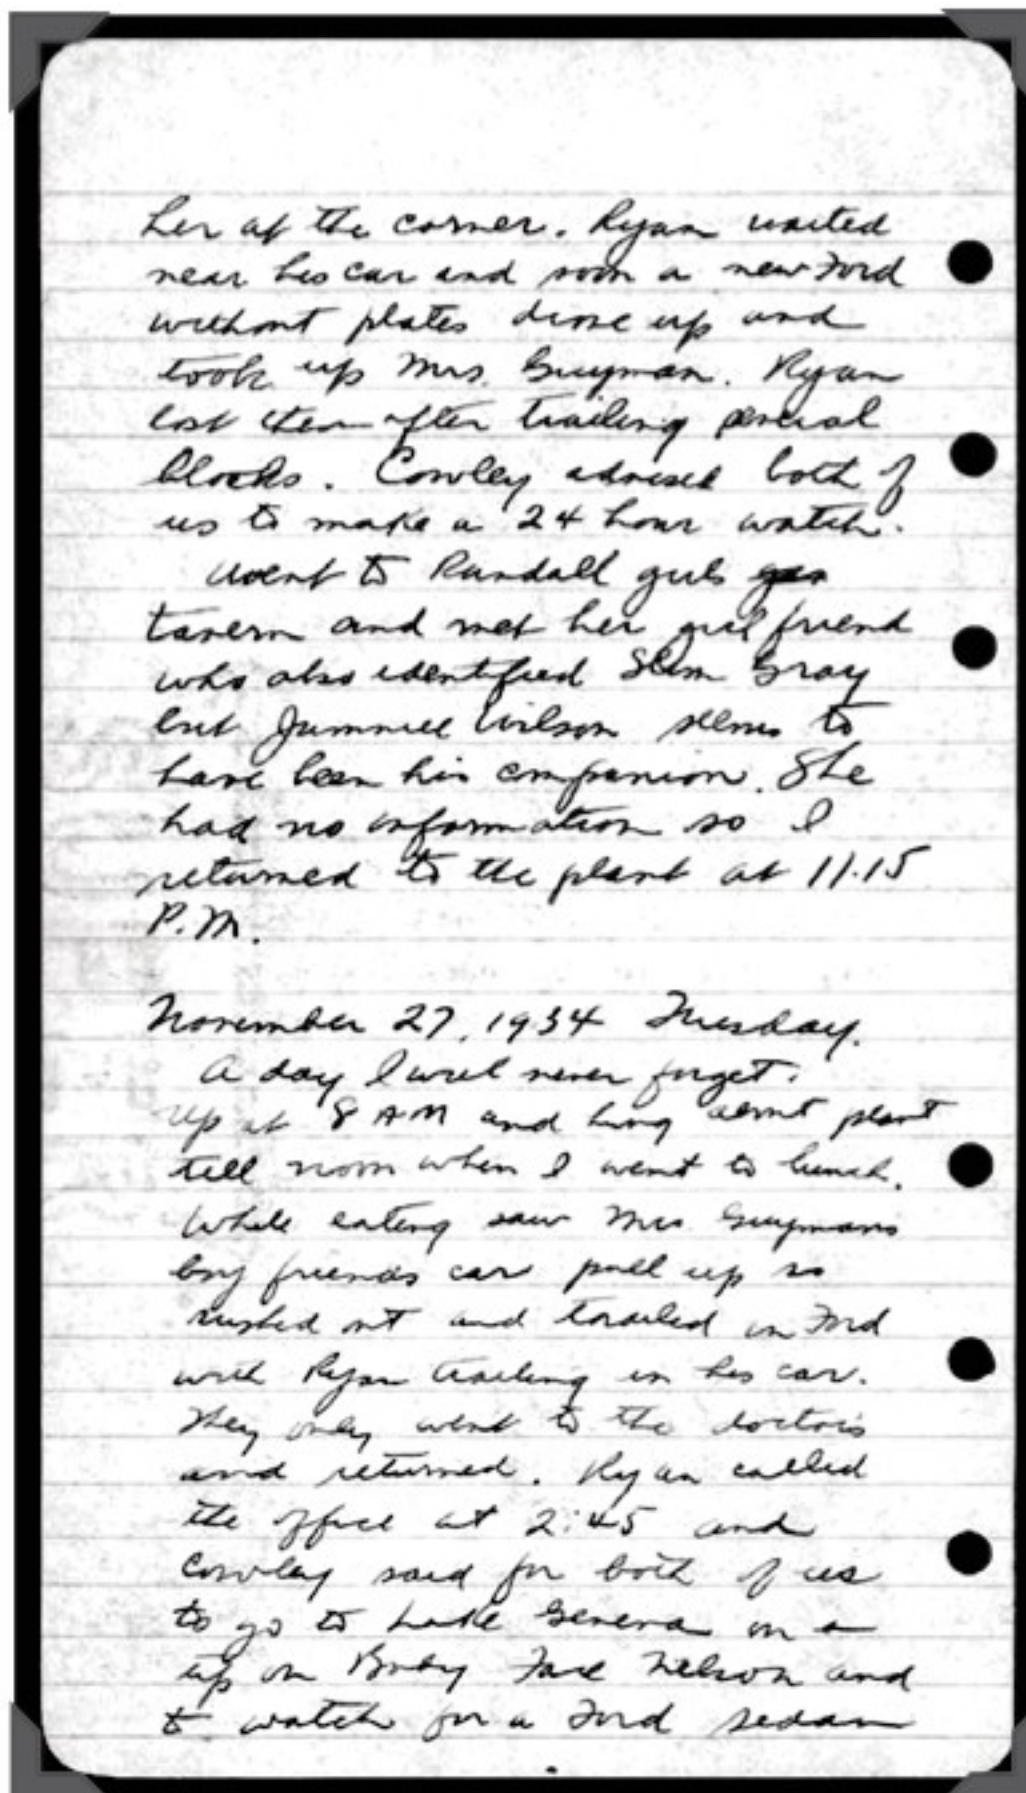 her at the corner. Ryan waited
near his car and soon a new Ford
without plates drove up and
took up Mrs. Guyman. Ryan
lost them after trailing several
blocks. Cowley advised both of
us to make a 24 hour watch.
Went to Randall girls
tavern and met her girl friend
who also identified Slim Gray
but Jimmie Wilson seems to
have been his companion. She
had no information so I
returned to the plant at 11.15
P.M.
November 27, 1934 Tuesday.
A day I will never forget.
Up at 8 AM and hung about plant
till noon when I went to lunch.
While eating saw Mrs Guymans
boy friends car pull up so
rushed out and trailed in Ford
with Ryan trailing in his car.
They only went to the doctors
and returned. Ryan called
the office at 2:45 and
Cowley said for both of us
to go to Lake Geneva on a
tip on Baby Face Nelson and
to watch for a Ford sedan